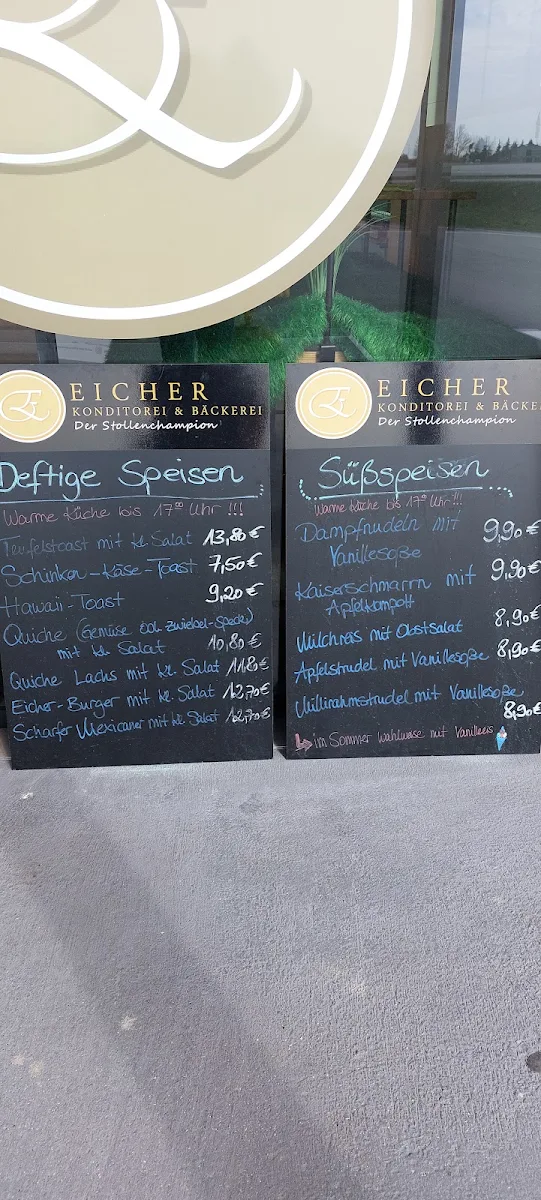 EICHER
KONDITOREI & BÄCKEREI
Der Stollenchampion
Deftige Speisen
Warme Küche bis 17⁰⁰ Uhr !!!
Teufelstoast mit kl. Salat 13,80€
Schinken-Käse-Toast 7,50€
Hawaii-Toast 9,20€
Quiche (Gemüse od. Zwiebel-Speck)
mit kl. Salat 10,80€
Quiche Lachs mit kl. Salat 11,80€
Eicher-Burger mit kl. Salat 12,70€
Scharfer Mexicaner mit kl. Salat 12,70€
EICHER
KONDITOREI & BÄCKE
Der Stollenchampion
Süßspeisen
Warme Küche bis 17⁰⁰ Uhr!!!
Dampfnudeln mit 9,90€
Vanillesoße
Kaiserschmarrn mit 9,90€
Apfelkompott
Milchreis mit Obstsalat 8,90€
Apfelstrudel mit Vanillesoße 8,90€
Millirahmstrudel mit Vanillesoße
8,90€
im Sommer wahlweise mit Vanilleeis